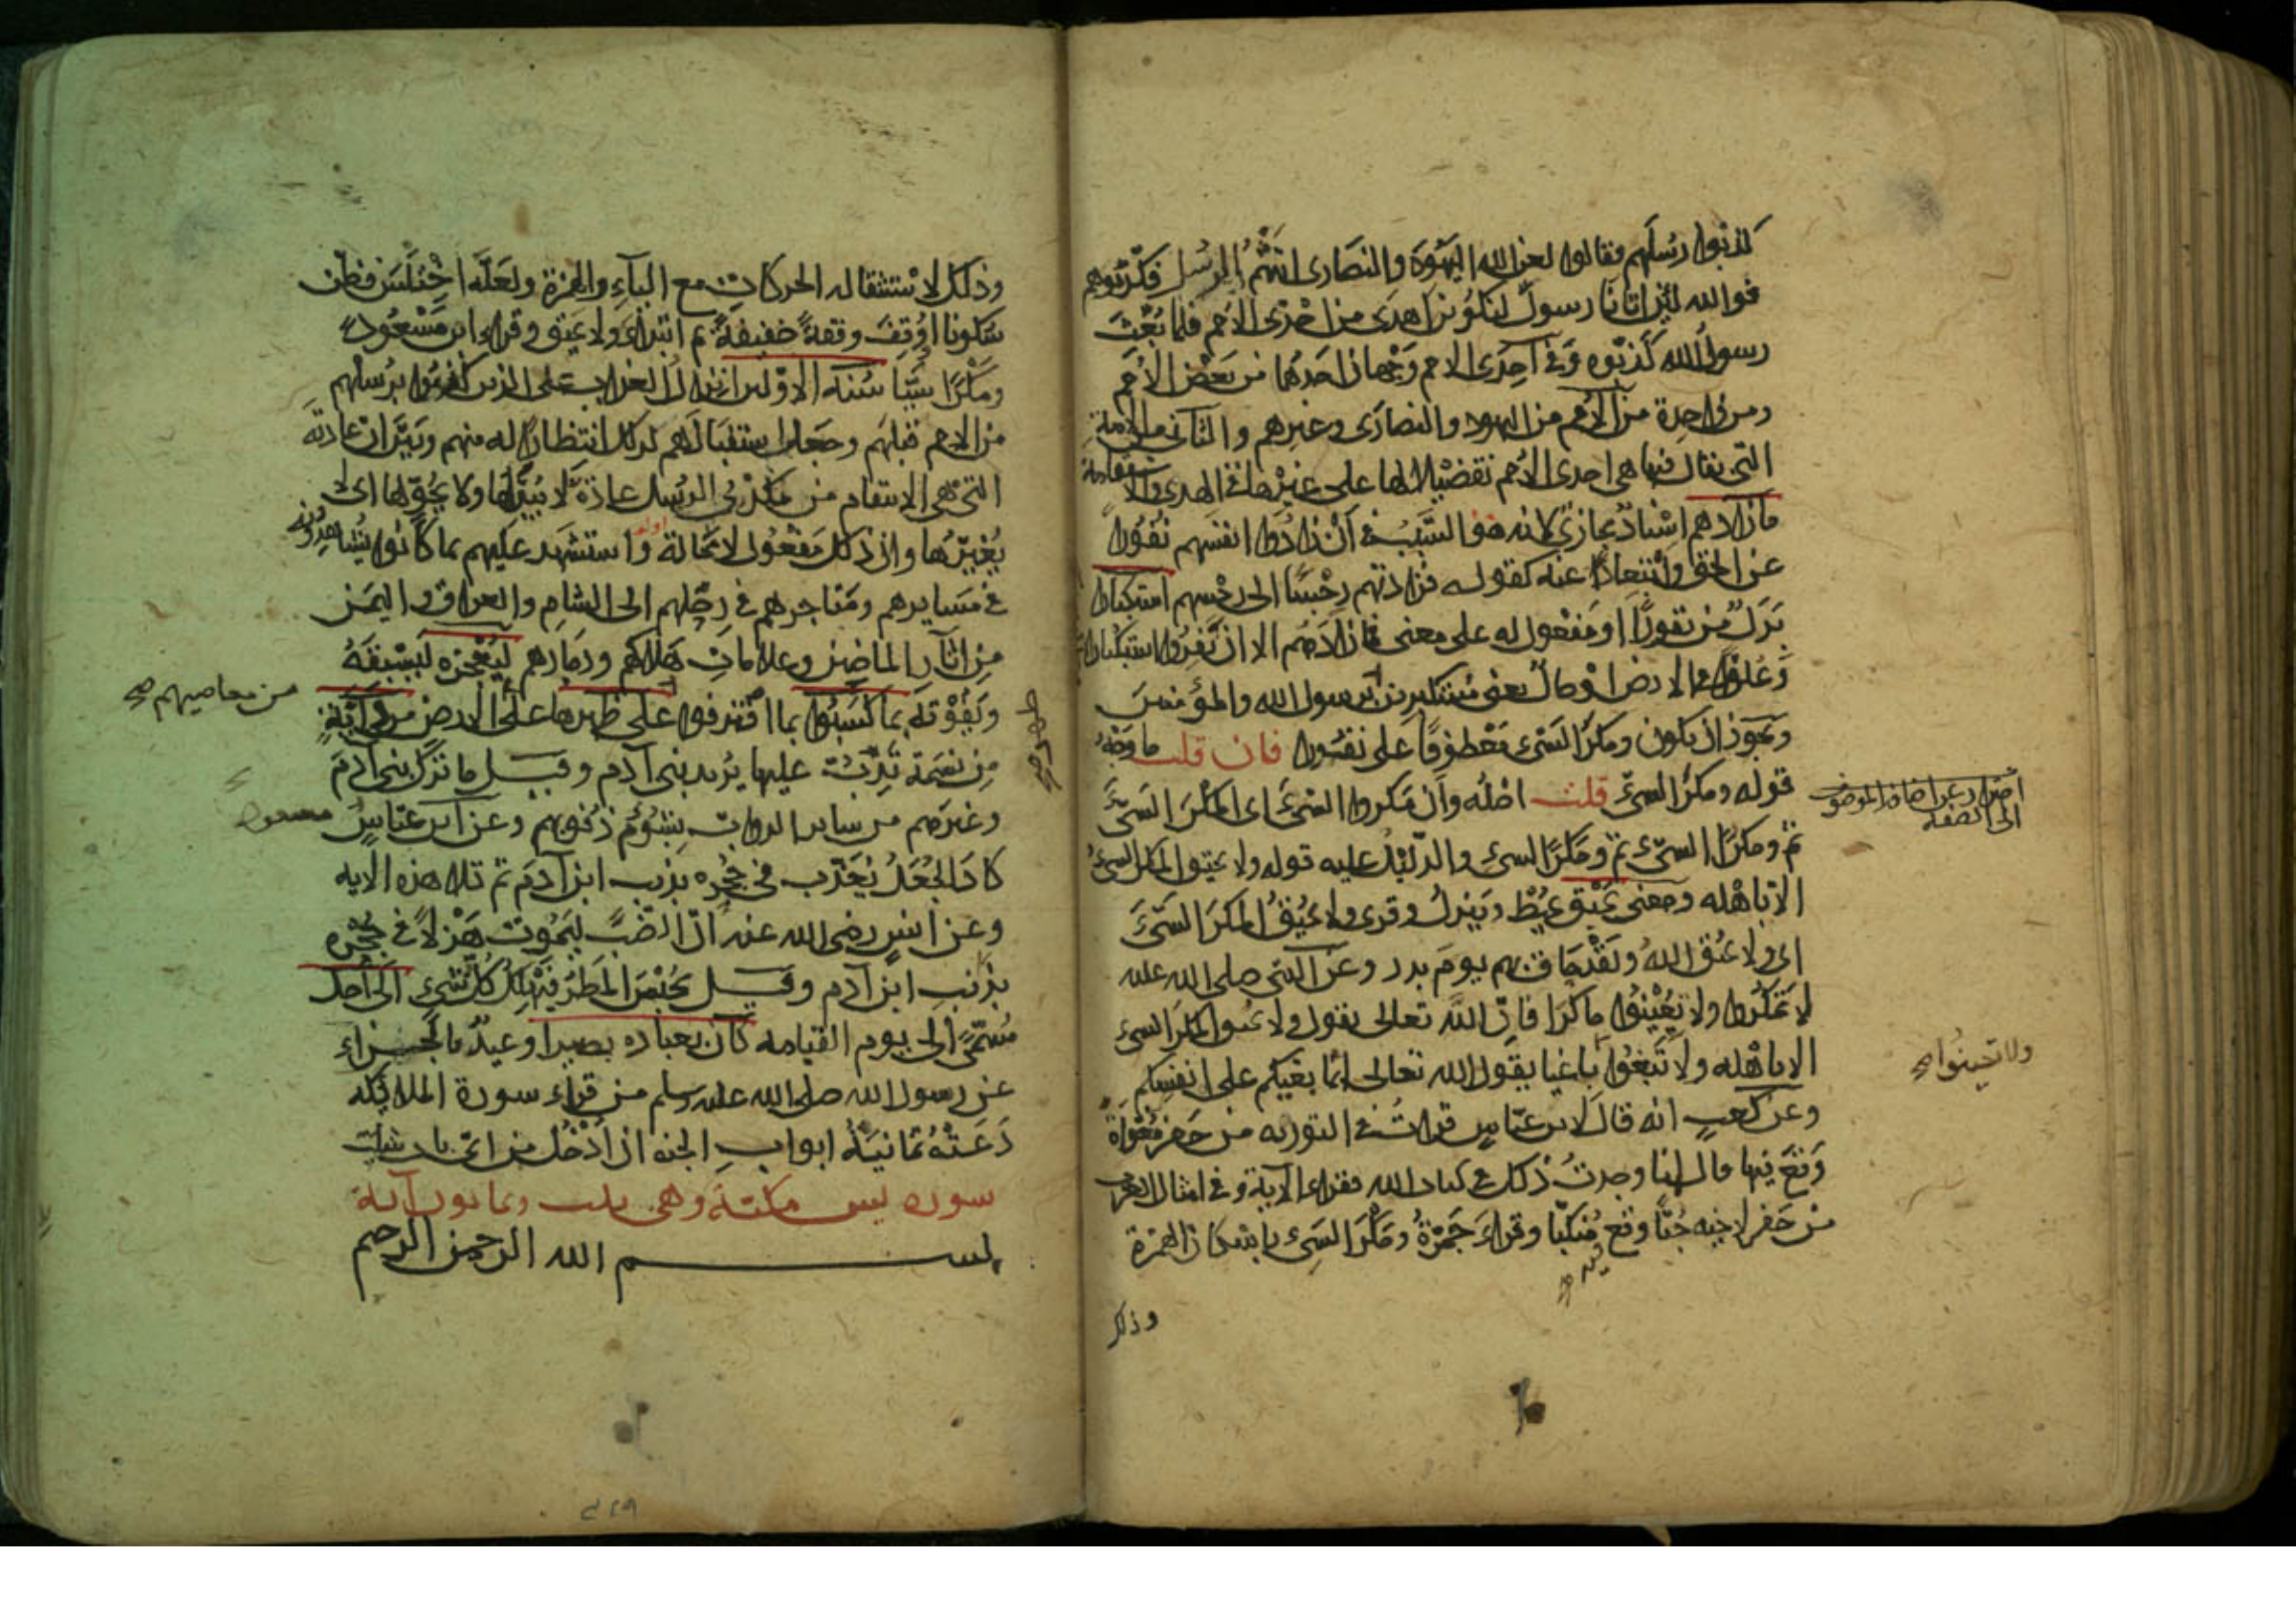 كذبوا رسلهم فقالوا لعن الله اليهود والنصارى اتتهم الرسل فكذبوهم
فوالله لئن اتانا رسول لنكونن اهدى من احدى الامم فلما بعث
رسول الله كذبوه وفي احدى الامم وجهان احدهما من بعض الامم
ومن واحدة من الامم من اليهود والنصارى وغيرهم والثاني من الامة
التي يقال فيها هي احدى الامم تفضيلا لها على غيرها في الهدى والاستقامة
ما زادهم اسناد مجازي لانه هو السبب في ان زادوا انفسهم نفورا
عن الحق وابتعادا عنه كقوله فزادتهم رجسا الى رجسهم استكبارا
بدل من نفورا او مفعول له على معنى فما زادهم الا ان نفروا استكبارا
وعلوا في الارض او حال يعني مستكبرين برسول الله والمؤمنين
ويجوز ان يكون ومكر السيئ معطوفا على نفورا فان قلت ما وجه
قوله ومكر السيئ قلت اصله وان مكروا السيئ اى المكر السيئ
ثم ومكرا السيئ ثم ومكر السيئ والدليل عليه قوله ولا يحيق المكر السيئ
الا باهله ومعنى يحيق يحيط وينزل وقرى ولا يحيق المكر السيئ
اى ولا يحيق الله ولقد حاق بهم يوم بدر وعن النبي صلى الله عليه
لا تمكروا ولا تعينوا ماكرا فان الله تعالى يقول ولا يحيق المكر السيئ
الا باهله ولا تبغوا باغيا يقول الله تعالى انما بغيكم على انفسكم
وعن كعب انه قال لابن عباس قرات في التورية من حفر مغواة
وقع فيها قال انا وجدت ذلك في كتاب الله فقراء الآية وفي امثال العرب
من حفر لاخيه جبا وقع منكبا وقراء حمزة ومكر السيئ باسكان الهمزة
وذلك
ولا تعينوا صح
وذلك لاستثقاله الحركات مع الياء والهمزة ولعله اختلس فظن
سكونا او وقف وقفة خفيفة ثم ابتداء ولا يحيق وقراء ابن مسعود
ومكرا سيئا سنة الاولين انزال العذاب على الذين كفروا برسلهم
من الامم قبلهم وجعل استقبالهم لذلك انتظارا له منهم وبين ان عادته
التي هي الانتقام من مكذبي الرسل عادة لا يبدلها ولا يحولها اى لا
يغيرها وان ذلك مفعول لا محالة واستشهد عليهم بما كانوا يشاهدونه
في مسايرهم ومتاجرهم في رحلهم الى الشام والعراق واليمن
من اثار الماضين وعلامات هلاكهم ودمارهم ليعجزه ليسبقه
ويفوته بما كسبوا بما اقترفوا على ظهرها على الارض من دابة
من نسمة تدب عليها يريد بني آدم وقيل ما ترك بني آدم
وغيرهم من ساير الدواب بشؤم ذنوبهم وعن ابن عباس
كاد الجعل يعذب في جحره بذنب ابن آدم ثم تلا هذه الايه
وعن انس رضي الله عنه ان الضب ليموت هزلا في جحره
بذنب ابن آدم وقيل يحبس المطر فيهلك كل شيء الى اجل
مسمى الى يوم القيامه كان بعباده بصيرا وعيد بالجزاء
عن رسول الله صلى الله عليه وسلم من قراء سورة الملائكه
دعته ثمانية ابواب الجنه ان ادخل من اى باب شيت
سوره يس مكية وهي ثلث وثمانون آية
بسم الله الرحمن الرحيم
من معاصيهم صح
مسعود